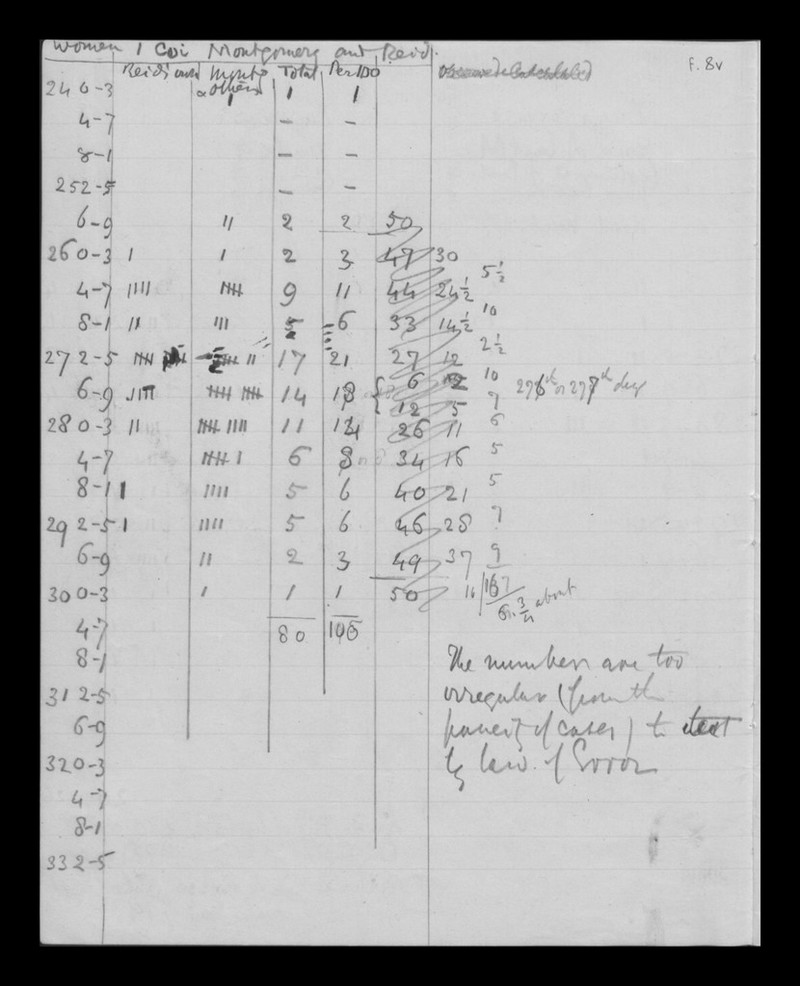 Women Montgomery and Reid.
Reid's and Montg & others Total Per 100 F. 8v
240-3 1 1 1
4-7 – –
8-1 – –
252-5 – –
6-9 11 2 2 50
260-3 1 1 2 3 47 30
5 1/2
4-7 1111 1111 9 11 44 24 1/2
10
8-1 11 111 5 6 33 14 1/2
2 1/2
272-5 17 21 27 12
6 10
6-9 14 276th or 277th deg
12 5 7
280-3 11 11 26 11 6
4-7 6 8 34 16 5
8-1 1 1111 5 6 40 21 5
292-5 1 1111 5 6 46 28 7
6-9 11 2 3 49 37 9
300-3 1 1 1 50 167
about
4-7 80
8-1
312-5
6-9
320-3
4-7
8-1
332-5
The numbers are too
irregular (from the
paucity of cases) to test
by law of Error